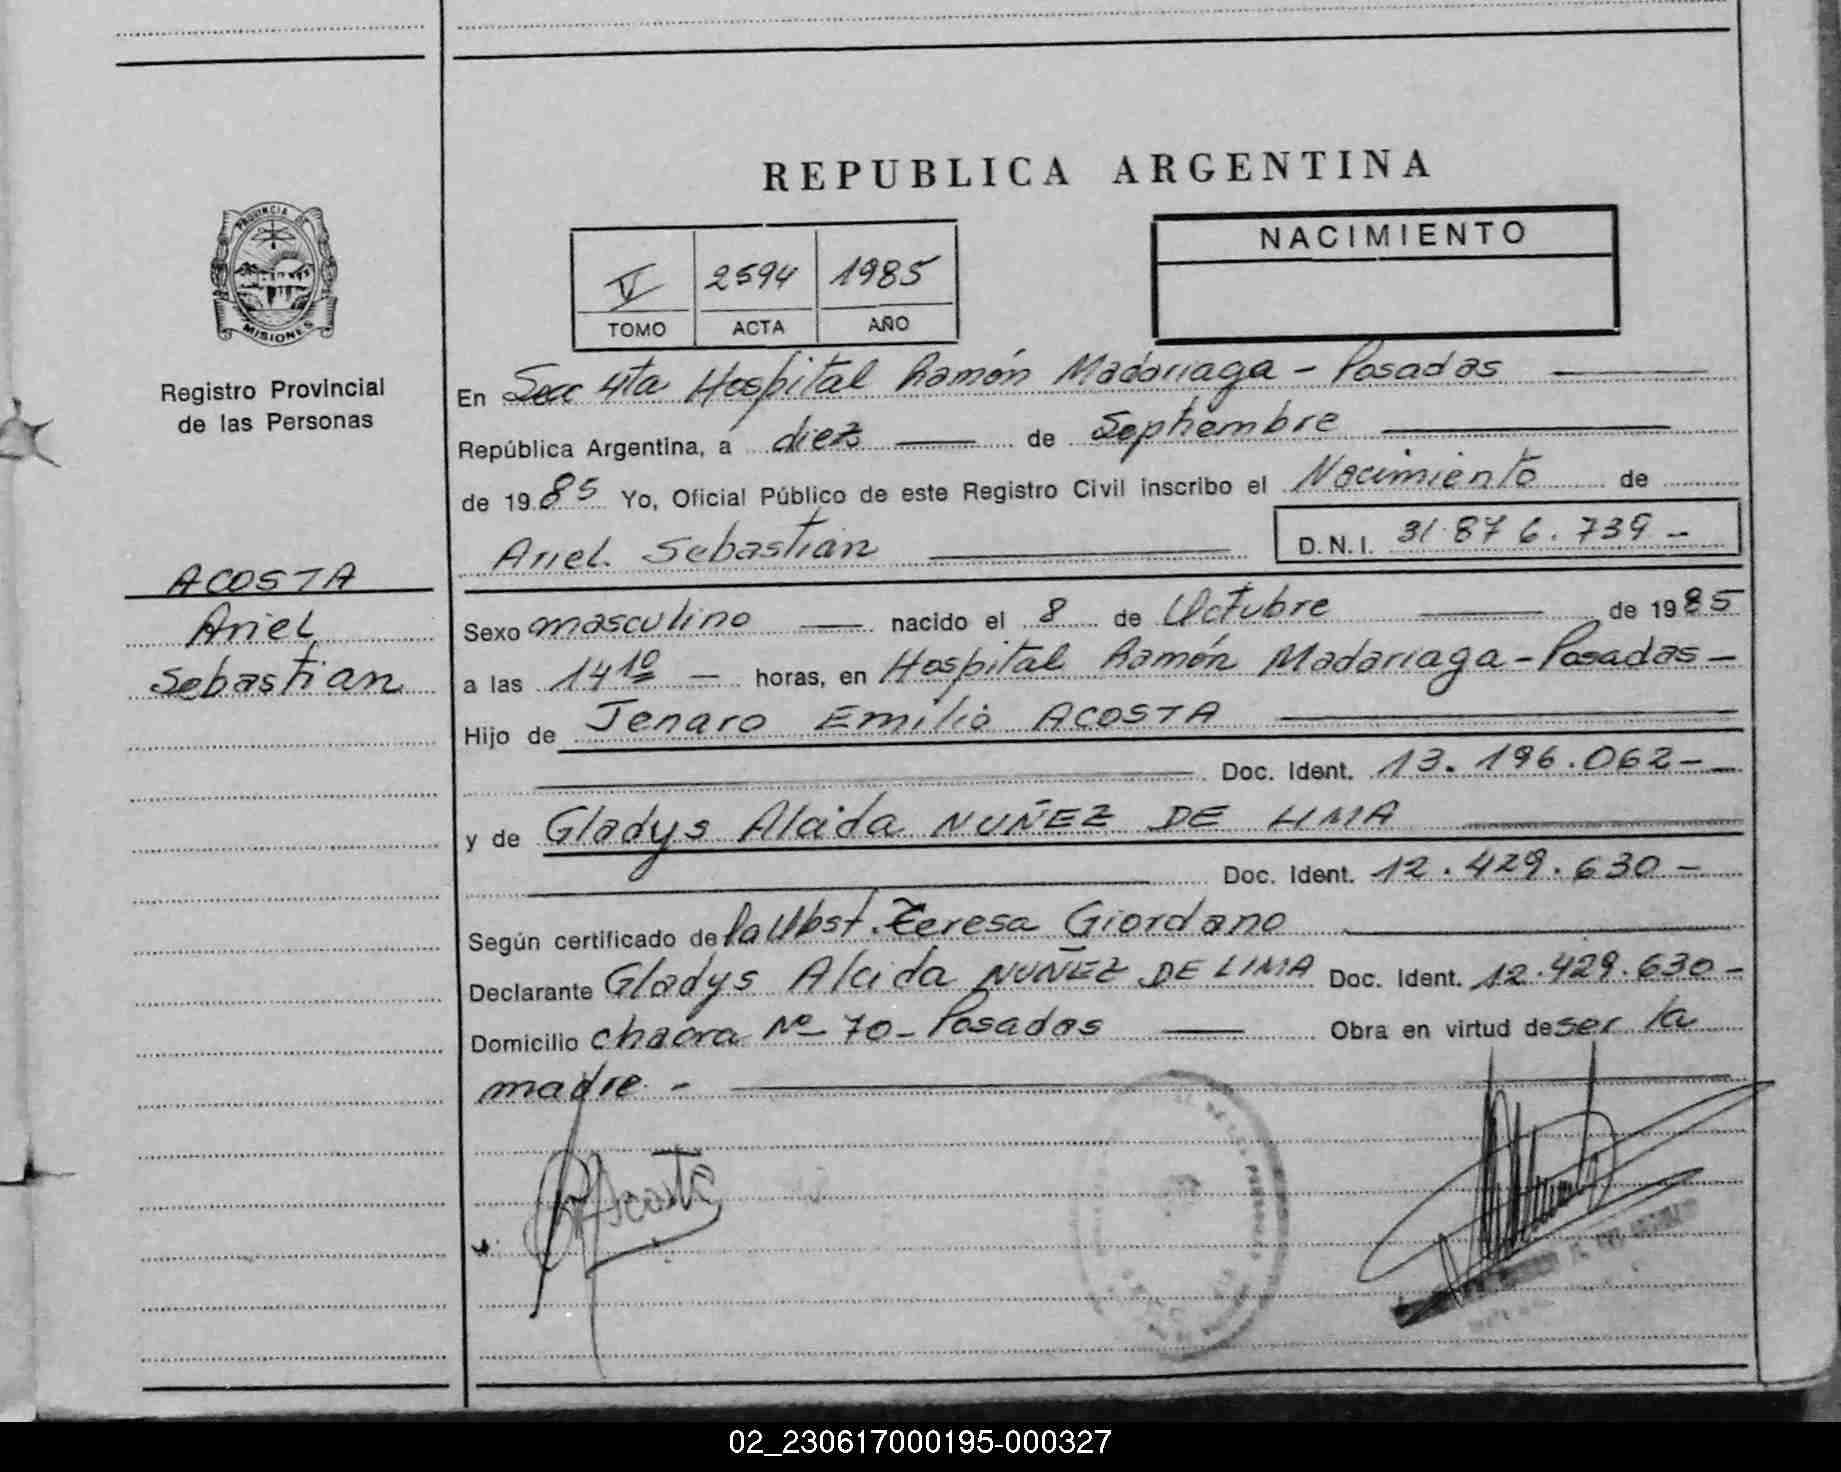 REPUBLICA ARGENTINA
PROVINCIA DE
MISIONES
Registro Provincial
de las Personas
V 2594 1985
TOMO ACTA AÑO
NACIMIENTO
En Secc 4ta Hospital Ramón Madariaga - Posadas
República Argentina, a diez de Septiembre
de 1985 Yo, Oficial Público de este Registro Civil inscribo el Nacimiento de
Ariel Sebastian D.N.I. 31.876.739 -
ACOSTA
Ariel
Sebastian
Sexo masculino nacido el 8 de Octubre de 1985
a las 14 10 horas, en Hospital Ramón Madariaga - Posadas -
Hijo de Jenaro Emilio ACOSTA
Doc. Ident. 13.196.062 -
y de Gladys Alcida NUÑEZ DE LIMA
Doc. Ident. 12.429.630 -
Según certificado de la Obst. Teresa Giordano
Declarante Gladys Alcida NUÑEZ DE LIMA Doc. Ident. 12.429.630 -
Domicilio chacra Nº 70 - Posadas Obra en virtud de ser la
madre. -
Acosta
02_230617000195-000327